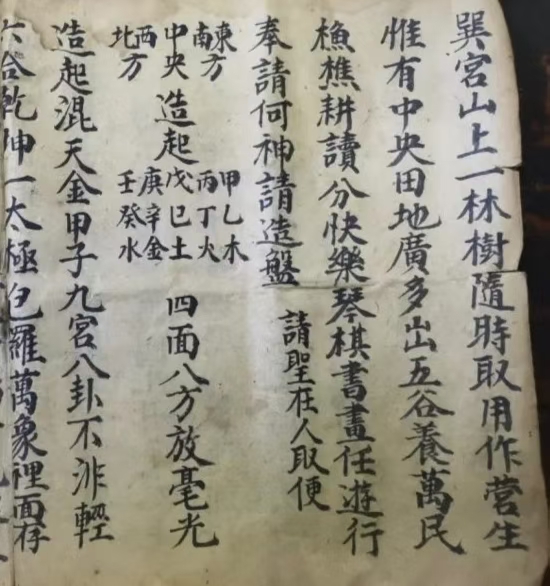 巽宮山上一林樹隨時取用作营生
惟有中央田地廣多出五谷養萬民
樵耕讀分快樂琴棋書畫任遊行
奉請何神請造盤 請聖在人取便
東方 南 中央 西 北方 造起 甲乙木 丙丁火 戊巳土 庚辛金 壬癸水 四面八方放毫光
造起混天金甲子九宮八卦不非輕
六合乾坤一太極包羅萬象裡面存